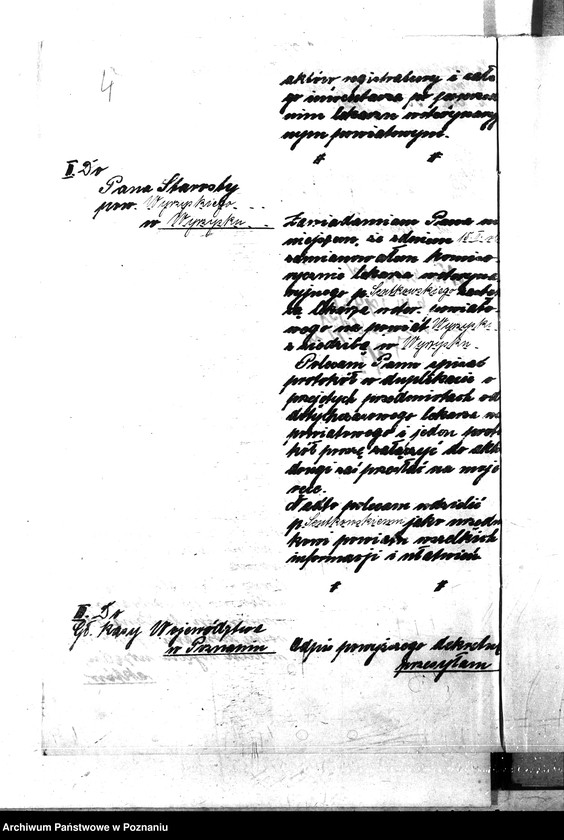 4
aktów registratury i całe
go inwentarza po poprzed
nim lekarzu weterynaryj
nym powiatowym.
II. Do
Pana Starosty
pow. Wyrzyskiego
w Wyrzysku
Zawiadamiam Pana ni
niejszem, że z dniem
zamianowałem komiso
rycznie lekarza weteryna
ryjnego p. Szutkowskiego
lekarza weter. powiato
wego na powiat Wyrzysk
z siedzibą w Wyrzysku.
Polecam Panu spisać
protokół w duplikacie o
przejętych przedmiotach od
dotychczasowego lekarza
powiatowego i jeden proto
kół proszę załączyć do akt
drugi zaś przesłać na moje
ręce.
Nadto polecam udzielić
p. Szutkowskiemu jako urzęd
kowi powiatu wszelkich
informacji i ułatwień
III. Do
Gł. Kasy Województwa
w Poznaniu
Odpis powyższego dekretu
przesyłam
Archiwum Państwowe w Poznaniu